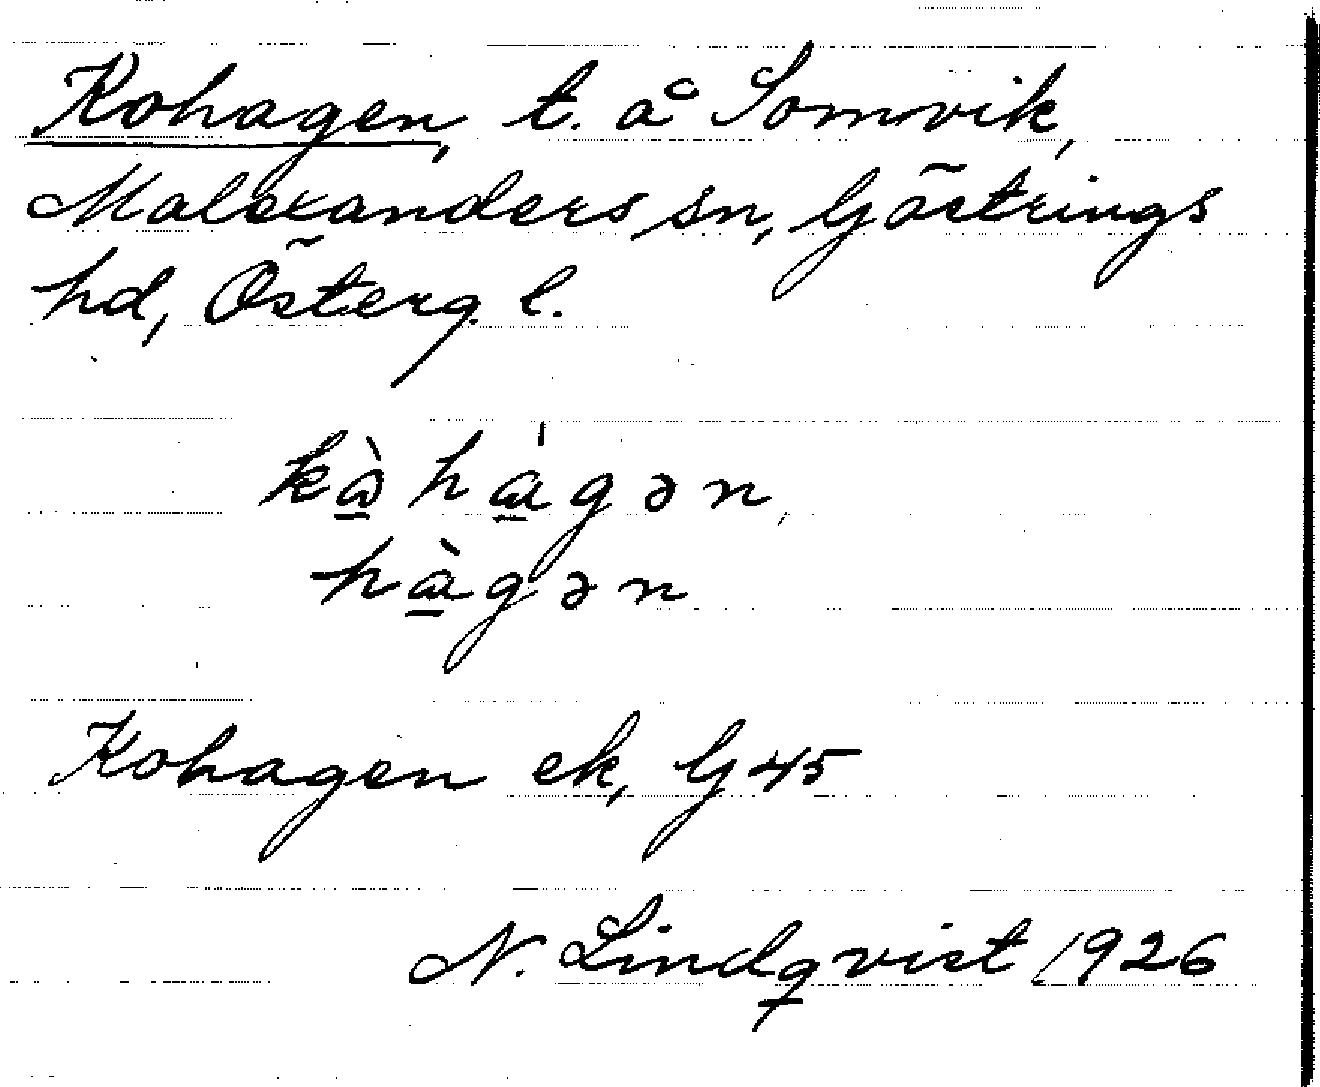 Kohagen, t. å Somvik,
Malexanders sn, Göstrings
hd, Österg. l.
kὰ̱hά̱gən,
hὰ̱gən
Kohagen ek, G 45
N. Lindqvist 1926